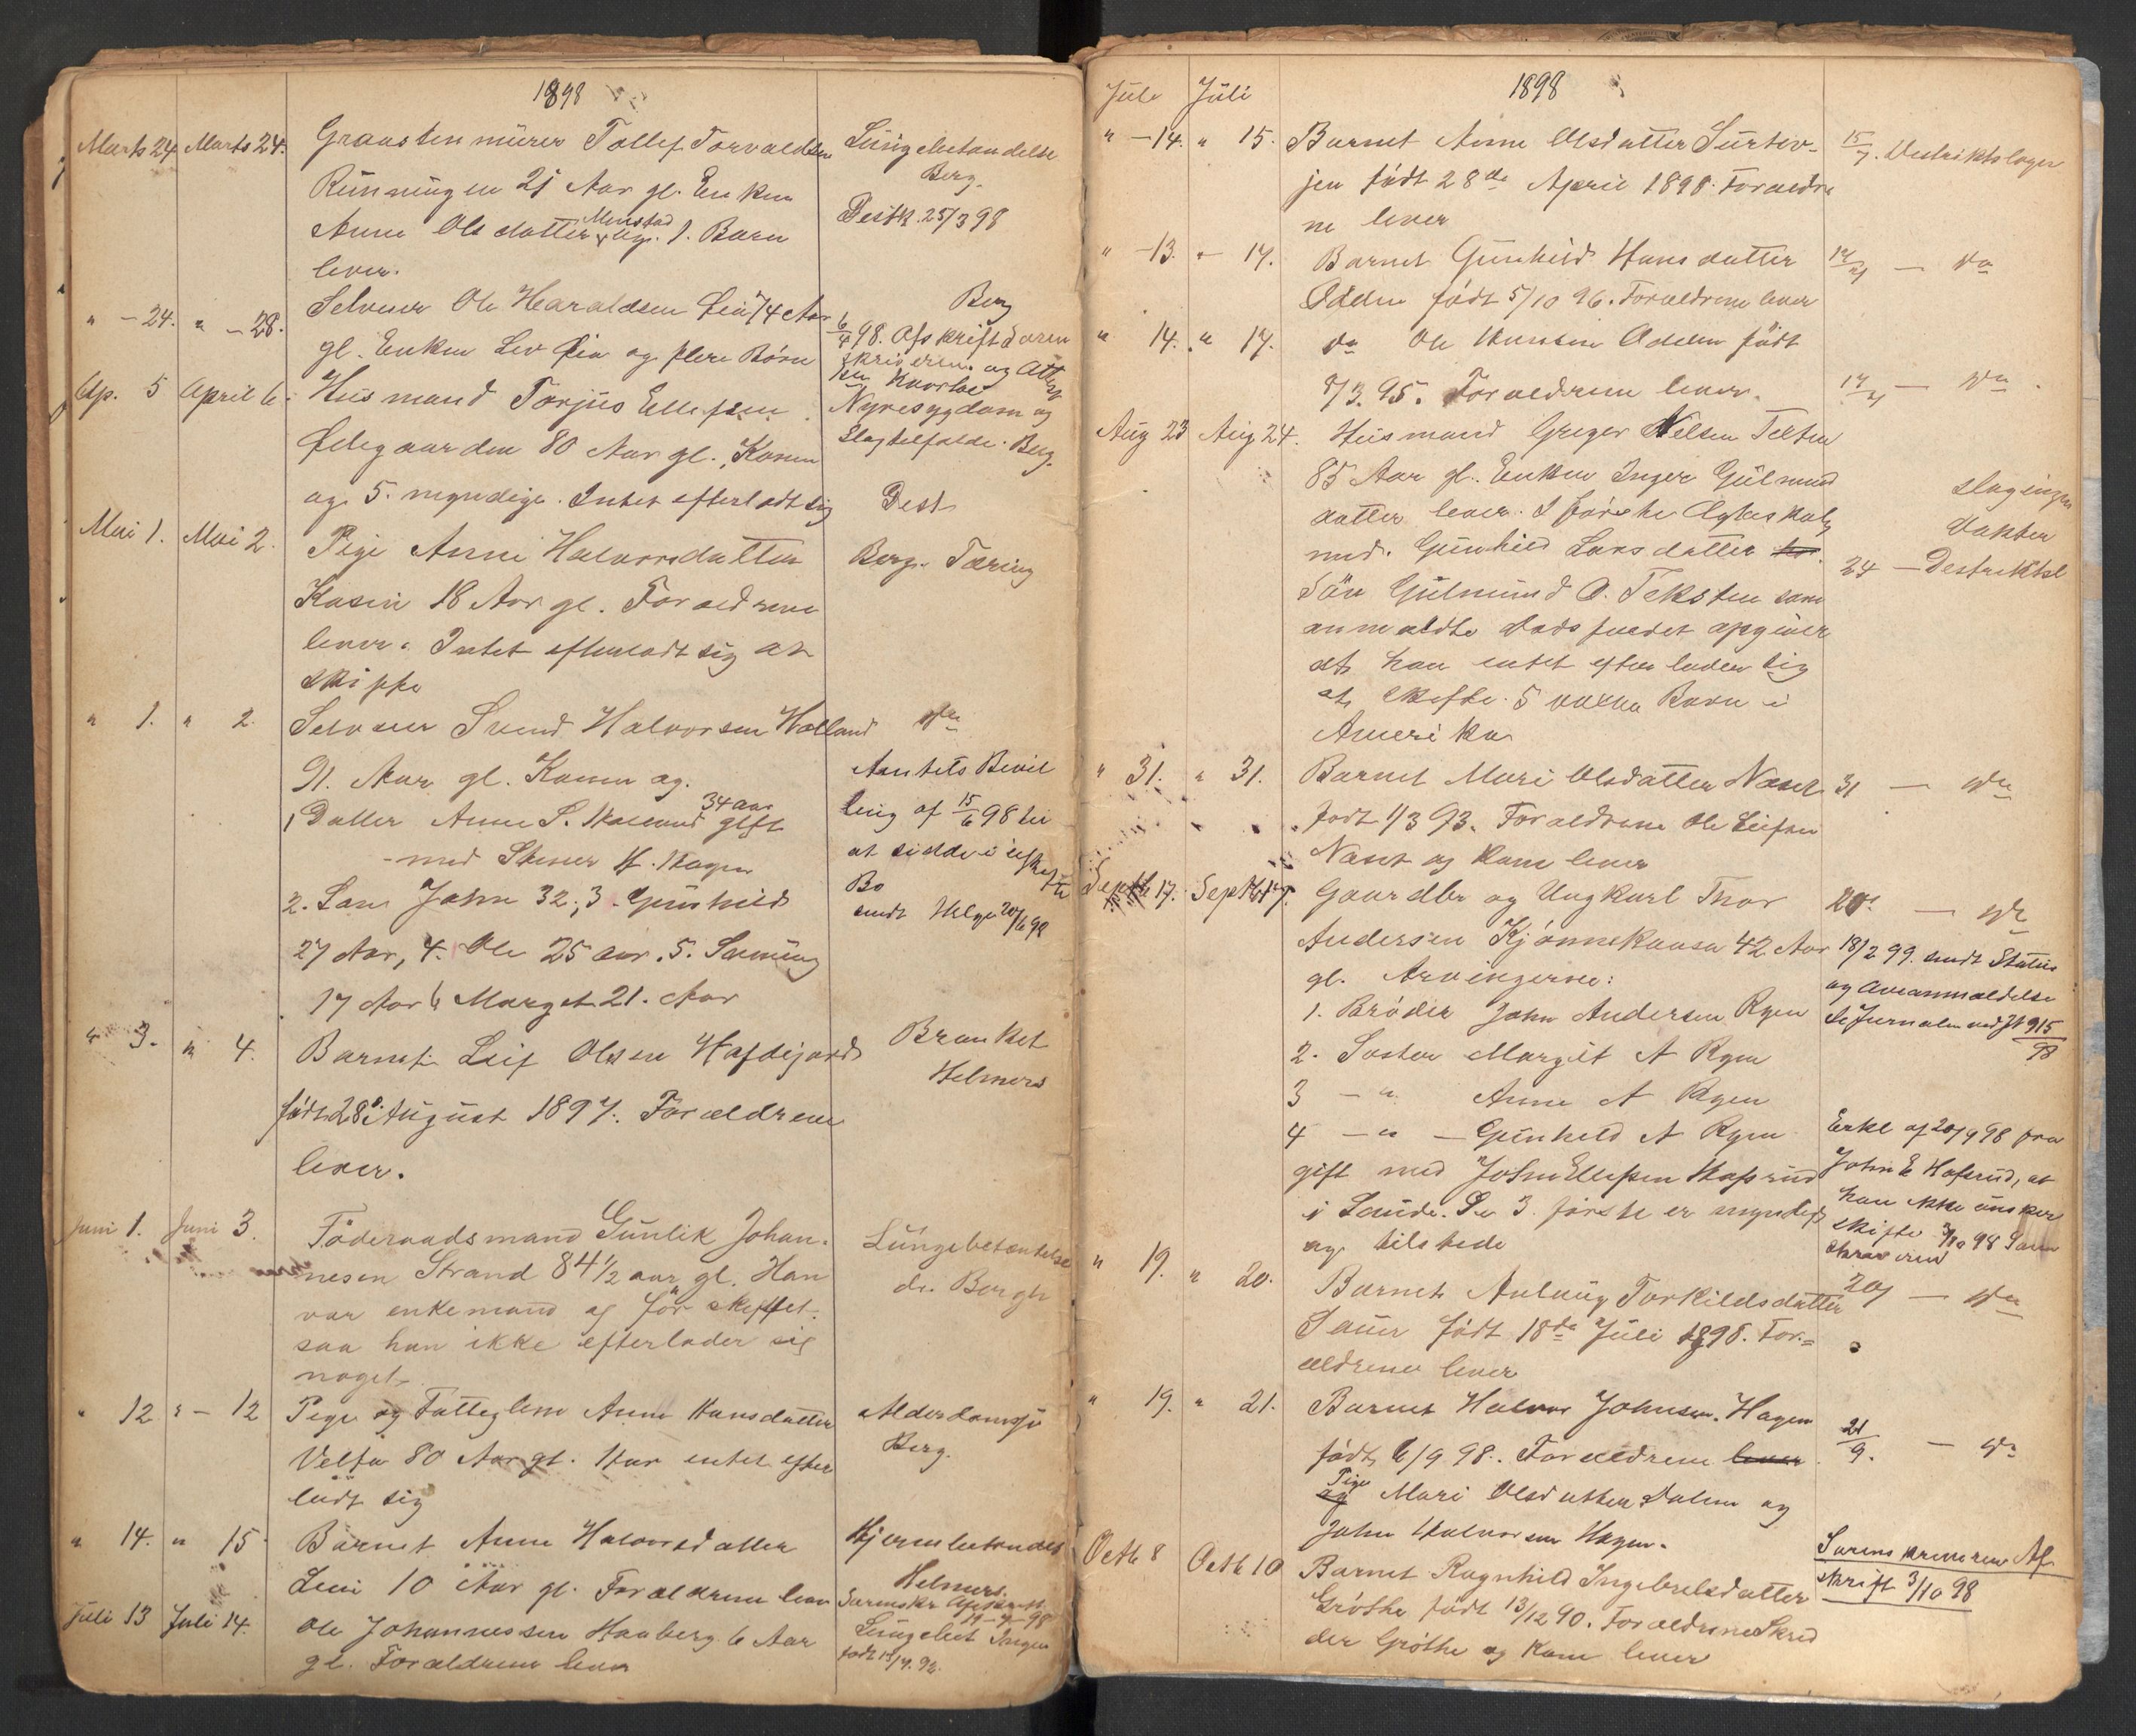 1898
Marts 24 Marts 24. Graastenmürer Tollef Torvaldsen Lüngebetændelse
Rünningen 21 Aar gl. Enken Berg.
Anne Olsdatter Menstad og 1. Barn Distk. 25/3 98
lever.
" - 24. " - 28. Selveier Ole Haraldsen Lia 74 Aar Berg
gl. Enken Liv Lia og flere Börn 6/4 98. Afskrift Soren
skriveren og Attest
Ap. 5 April 6. Husmand Torjus Ellefsen Nyresygdom og
Ödegaarden 80 Aar gl. Konen Slagtilfælde. Berg.
og 5. myndige. Intet efterladt sig Dest
Mai 1. Mai 2. Pige Anne Halvorsdatter Berg. Tæring
Kasin 18 Aar gl. Forældrene
lever. Intet efterladt sig at
skifte
" 1. " 2. Selveier Svend Halvorsen Holland do
71. Aar gl. Konen og. Amtets Bevil
1 Datter Anne S. Holland 34 aar gift ling af 15/6 98 til
med Stener H. Hagen at sidde i uskiftet
2. Søn John 32, 3. Günhild Bo
sendt Helge 20/6 98
27 Aar, 4. Ole 25 aar. 5. Sveinüng
17 Aar 6 Margit 21. Aar
" 3. " 4. Barnet Leif Olsen Hafdejord Bronket
Helmers
född 28de August 1897. Forældrene
lever.
Juni 1. Juni 3. Föderaadsmand Günlik Johan- Lüngebetendelse
nesen Strand 84 1/2 aar gl. Han dr. Bergh
var enkemand og før skiftet
saa han ikke efterlader sig
noget.
" 12 " - 12 Pige og Fatteglem Anne Hansdatter Alderdomssv
Velta 80 Aar gl. Har intet efter Berg.
ladt sig
" 14. " 15 Barnet Anne Halvorsdatter Hjernebetændel
Leni 10 Aar gl. Forældrene lever Helmers.
Sorenskr Afskrift
Juli 13 Juli 14. Ole Johannessen Haaberg 6 Aar Lüngebet Ingen
gl. Forældrene lever
Jule Jüli 1898
" - 14. " 15. Barnet Anne Olsdatter Sürtev- 15/7. Distriktslægen
jen född 28de April 1898. Forældre
ne lever
" - 13. " - 17. Barnet Günhild Hansdatter 17/7 - do
Odden född 5/10 96. Forældrene lever
" 14. " 17. do Ole Hansen Odden född
8/3. 95. Forældrene lever. 17/7 - do
Aug 23 Aug 24. Husmand Greger Nelsen Teksten
85 Aar gl. Enken Inger Gülmund
datter lever. I første Ægteskab
med. Günhild Larsdatter
Sön Gülmund G. Teksten som 24 - Destriktsl
anmeldte Dødsfaldet opgiver
at han intet efterlader sig
at skifte. 5 voxne Barn i
Amerika
" 31. " 31. Barnet Mari Olsdatter Næset 31 - do
född 1/3 93. Forældrene Ole Leifsen
Næset og Kone lever
Septb 17. Septbr 17. Gaardbr og Ungkarl Thor 20. - do
Andersen Kjönnekaasa 42 Aar 18/2 99. sendt Status
gl. Arvingerne: og Arveanmeldelse
1. Bröder John Andersen Ryen Se Jurnalen ved Jr 915/98
2. Søster Margit A Ryen
3 - " Anne A Ryen
4 - " - Günhild A Ryen Erkl af 20/9 98 fra
gift med John Ellefsen Hafsrud John E Hafsrud, at
i Saude. De 3. første er myndige han ikke önsker
og tilstede skifte 3/10 98 Soren
skriveren
" 19. " 20. Barnet Anlaug Torkildsdatter 20/ - do
Sauer född 18de Jüli 1898. For=
ældrene lever
" 19. " 21. Barnet Halvor Johnsen Hagen 21/9. - do
född 6/9 98. Forældrene lever
og Pige Mari Olsdatter Dalen og
John Halvorsen Hagen.
Octb 8 Octb 10 Barnet Ragnhild Ingebretsdatter Sorenskriveren Af
skrift 3/10 98
Gröthe född 13/12 90. Forældrene Skred
der Gröthe og Kone lever